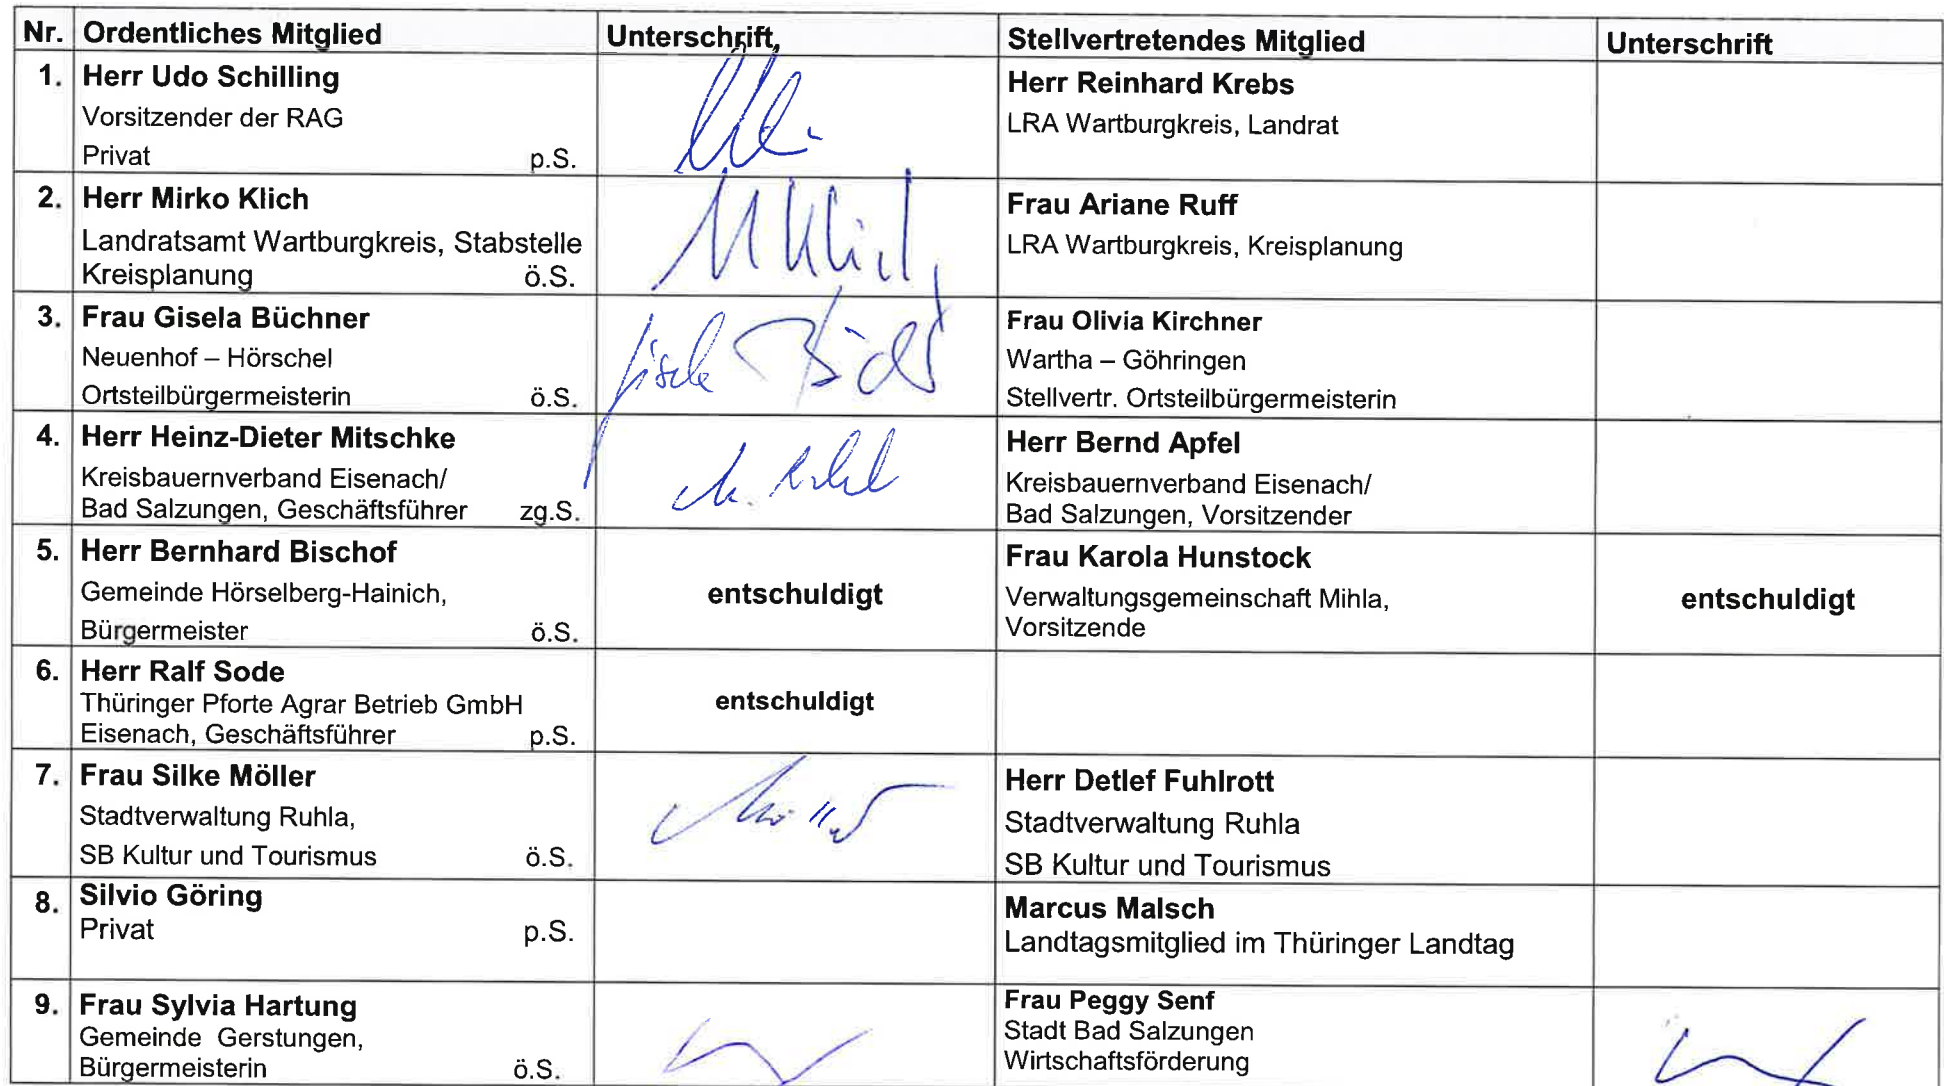 Nr. Ordentliches Mitglied Unterschrift Stellvertretendes Mitglied Unterschrift
1. Herr Udo Schilling
Vorsitzender der RAG
Privat p.S.
Herr Reinhard Krebs
LRA Wartburgkreis, Landrat
2. Herr Mirko Klich
Landratsamt Wartburgkreis, Stabstelle
Kreisplanung ö.S.
M Klich
Frau Ariane Ruff
LRA Wartburgkreis, Kreisplanung
3. Frau Gisela Büchner
Neuenhof – Hörschel
Ortsteilbürgermeisterin ö.S.
Frau Olivia Kirchner
Wartha – Göhringen
Stellvertr. Ortsteilbürgermeisterin
4. Herr Heinz-Dieter Mitschke
Kreisbauernverband Eisenach/
Bad Salzungen, Geschäftsführer zg.S.
Herr Bernd Apfel
Kreisbauernverband Eisenach/
Bad Salzungen, Vorsitzender
5. Herr Bernhard Bischof
Gemeinde Hörselberg-Hainich,
Bürgermeister ö.S.
entschuldigt
Frau Karola Hunstock
Verwaltungsgemeinschaft Mihla,
Vorsitzende
entschuldigt
6. Herr Ralf Sode
Thüringer Pforte Agrar Betrieb GmbH
Eisenach, Geschäftsführer p.S.
entschuldigt
7. Frau Silke Möller
Stadtverwaltung Ruhla,
SB Kultur und Tourismus ö.S.
Möller
Herr Detlef Fuhlrott
Stadtverwaltung Ruhla
SB Kultur und Tourismus
8. Silvio Göring
Privat p.S.
Marcus Malsch
Landtagsmitglied im Thüringer Landtag
9. Frau Sylvia Hartung
Gemeinde Gerstungen,
Bürgermeisterin ö.S.
Frau Peggy Senf
Stadt Bad Salzungen
Wirtschaftsförderung